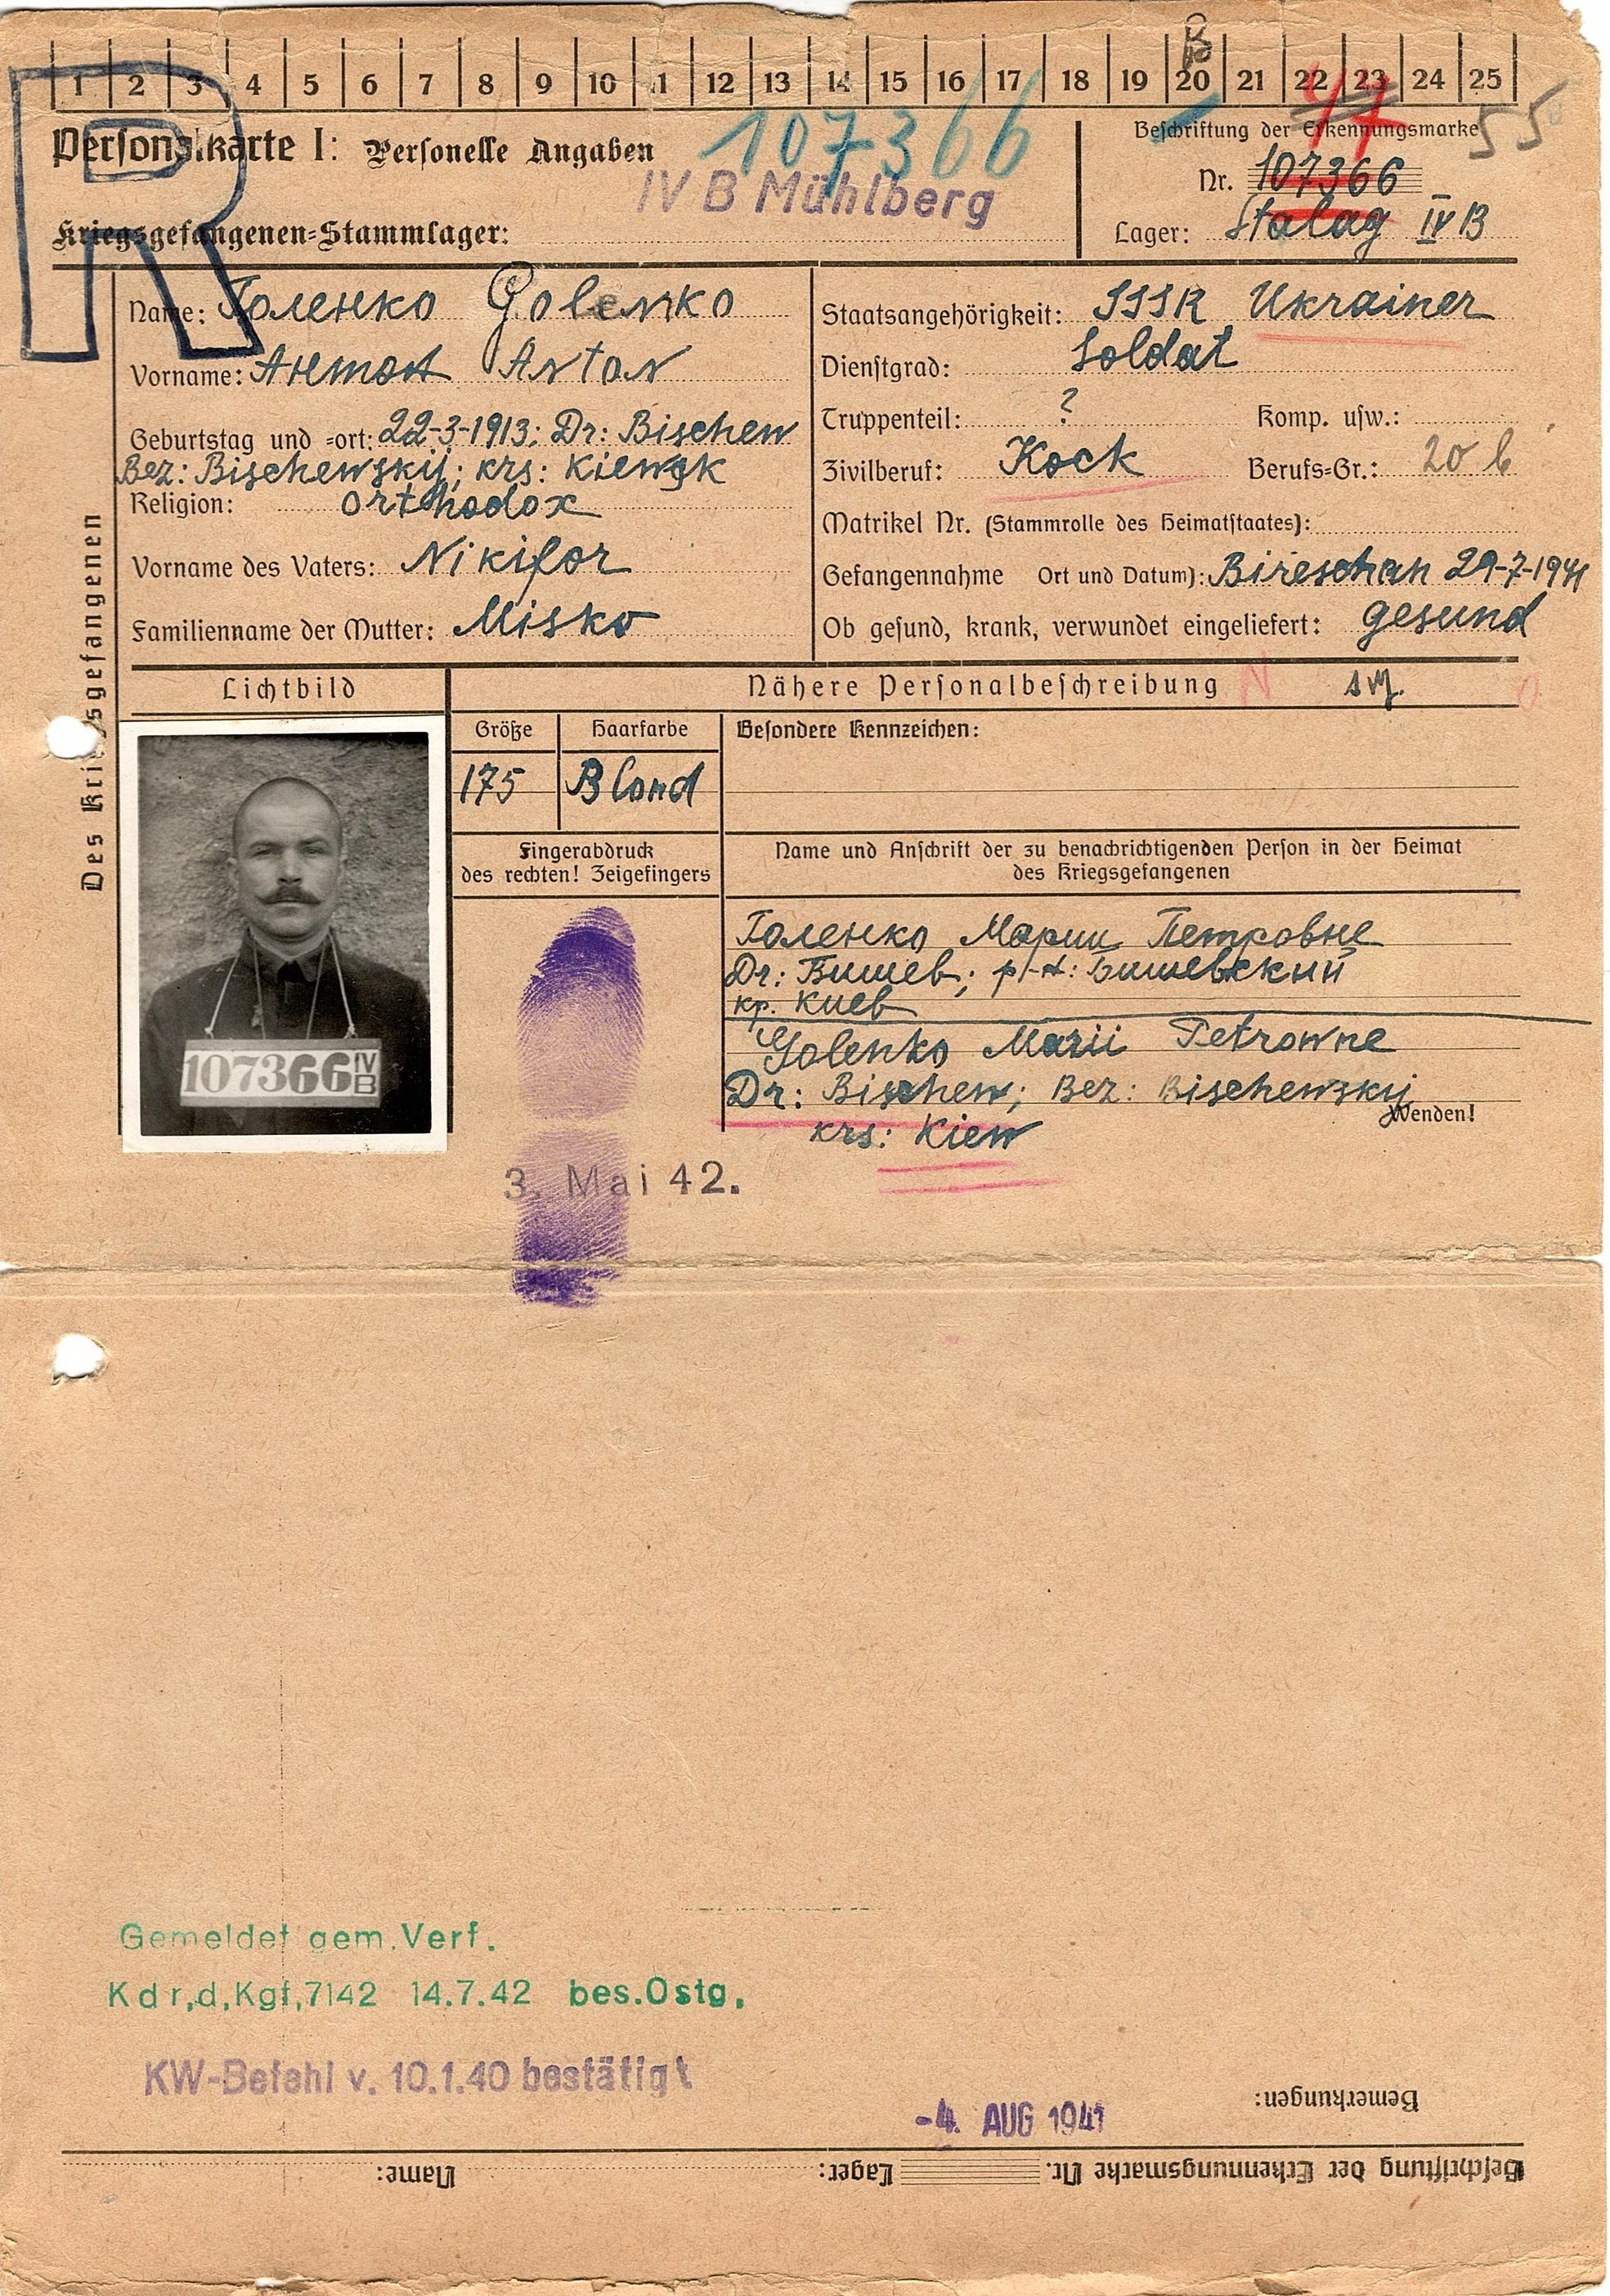 1 2 3 4 5 6 7 8 9 10 11 12 13 14 15 16 17 18 19 20 21 22 23 24 25
47
55
Personalkarte I: Personelle Angaben
107366
IV B Mühlberg
Kriegsgefangenen-Stammlager:
Beschriftung der Erkennungsmarke
Nr. 107366
Lager: Stalag IV B
R
Des Kriegsgefangenen
Name: Голенко Golenko
Vorname: Антон Anton
Geburtstag und -ort: 22-3-1913; Dr: Bischew
Bez: Bischewskij; krs: Kiewsk
Religion: orthodox
Vorname des Vaters: Nikifor
Familienname der Mutter: Misko
Staatsangehörigkeit: SSSR Ukrainer
Dienstgrad: Soldat
Truppenteil: ? Komp. usw.:
Zivilberuf: Kock Berufs-Gr.: 20 b
Matrikel Nr. (Stammrolle des Heimatstaates):
Gefangennahme Ort und Datum): Bireschan 29-7-1941
Ob gesund, krank, verwundet eingeliefert: gesund
Lichtbild
Nähere Personalbeschreibung N
Größe Haarfarbe Besondere Kennzeichen:
175 Blond
Fingerabdruck
des rechten! Zeigefingers
Name und Anschrift der zu benachrichtigenden Person in der Heimat
des Kriegsgefangenen
107366 IV B
Голенко Марии Петровне
Dr: Бишев; р/-н: Бишевский
кр. Киев
Golenko Marii Petrowne
Dr: Bischew; Bez: Bischewskij
krs: Kiew
Wenden!
3. Mai 42.
Gemeldet gem. Verf.
Kdr,d,Kgf,7142 14.7.42 bes.Ostg.
KW-Befehl v. 10.1.40 bestätigt
-4. AUG 1941
Bemerkungen:
Beschriftung der Erkennungsmarke Nr. Lager: Name: